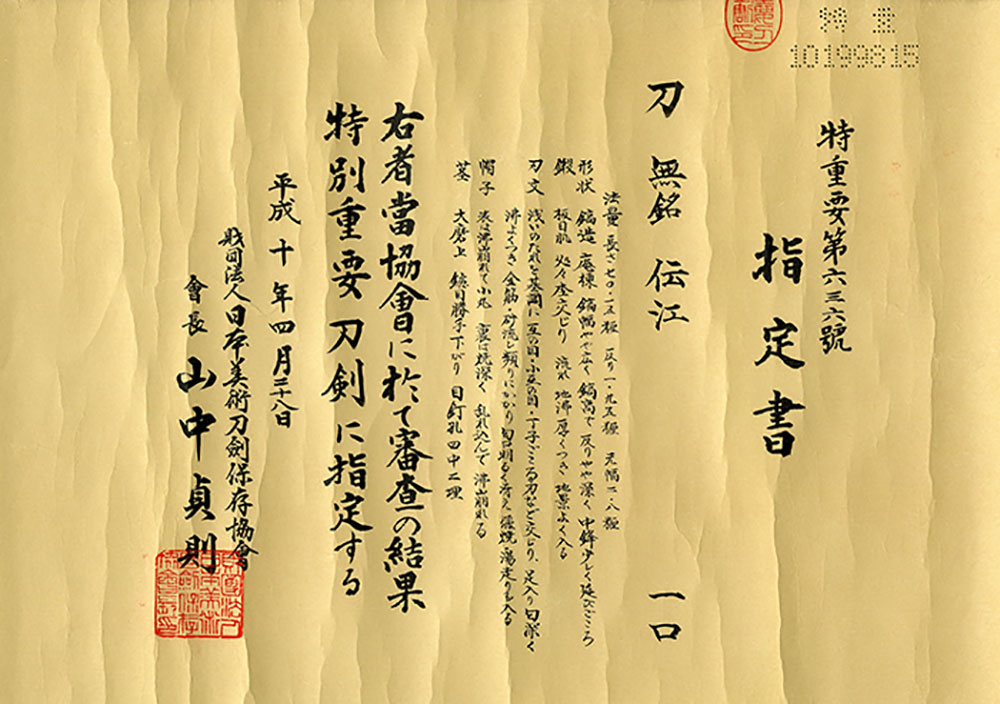 特重
10199815
特重要第六三六號
指定書
刀 無銘 伝江 一口
法量 長さ七〇・二五糎 反り一・九五糎 元幅三・八糎
形状 鎬造 庵棟 鎬幅やや広く 鎬高で 反りやや深く 中鋒少しく延びごころ
鍛 板目肌 処々杢交じり 流れ 地沸厚くつき 地景よく入る
刃文 浅いのたれを基調に 互の目・小互の目・丁子ごころの刃など交じり、足入り 匂深く
沸よくつき 金筋・砂流し頻りにかかり 匂口明るく冴え 飛焼 湯走りも入る
帽子 表は沸崩れて小丸 裏は焼深く 乱れ込んで 沸崩れる
茎 大磨上 鑢目勝手下がり 目釘孔四中二埋
右者當協會に於て審査の結果
特別重要刀剣に指定する
平成十年四月二十八日
財団法人日本美術刀劍保存協會
會長 山中貞則